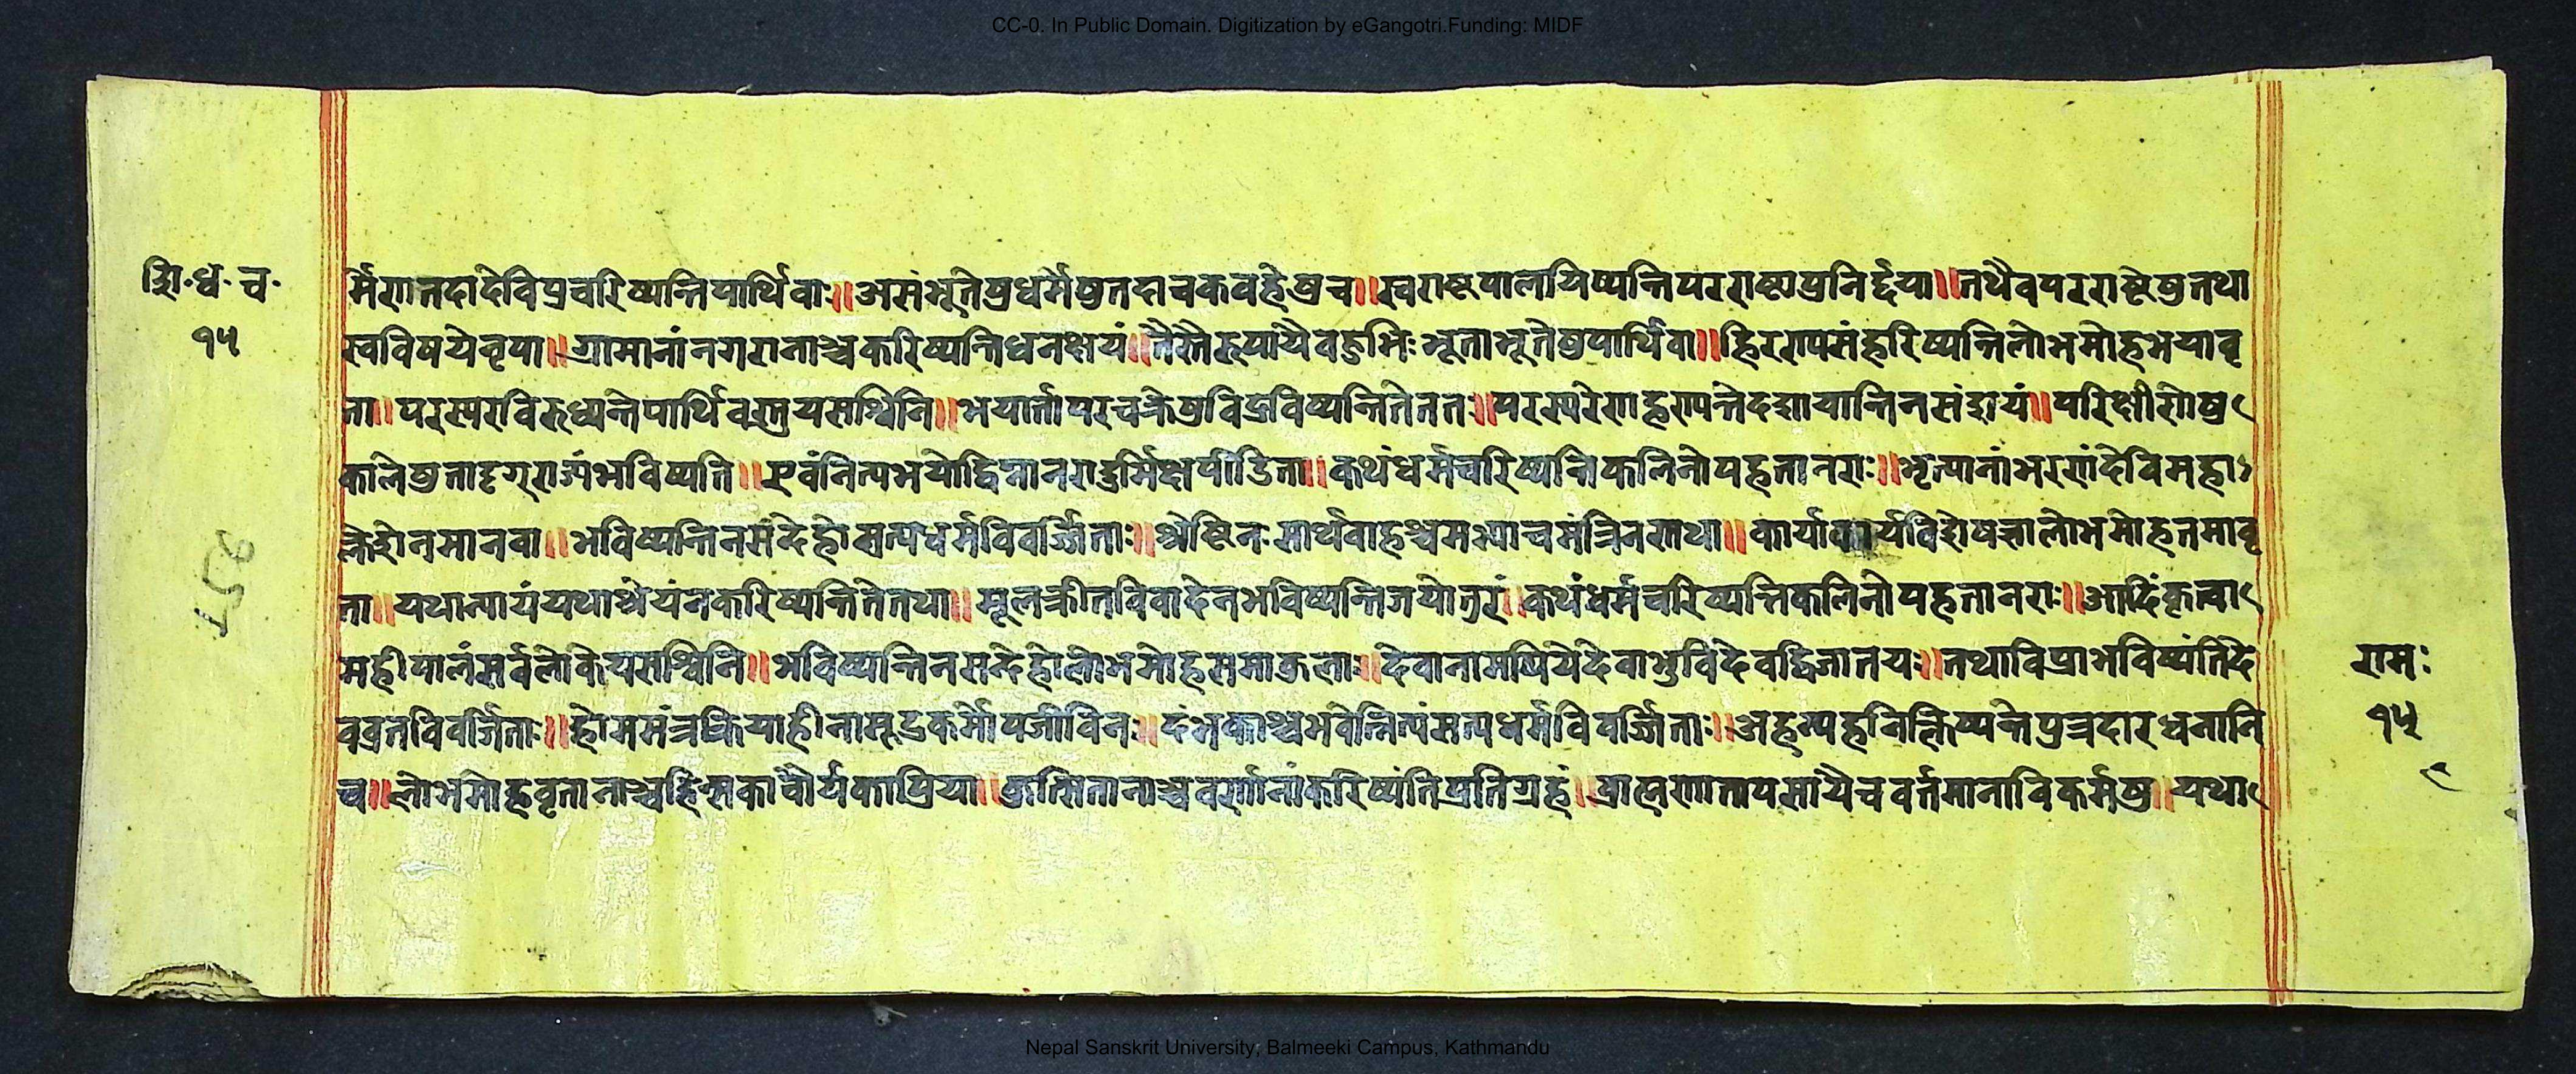 CC-0. In Public Domain. Digitization by eGangotri.Funding: MIDF
शि॰ध॰च॰
१५
र्मिणातदादेविप्रचरिष्यन्तिपार्थिवाः॥असंभूतेषुधर्मेषुतदाचकवहेषुच॥स्वराष्टपालयिष्यन्तिपरराष्टाप्रनिर्द्दया॥तथैवपरराष्टेषुतथा
स्वविषयेनृपा॥ग्रामानांनगरानाञ्चकरिष्यन्तिधनक्षयं॥तैस्तैरुपायैवहुभिःभूताभूतेषुपार्थिवा॥हिरण्यसंहरिष्यन्तिलोभमोहभयावृ
ता॥परस्परविरुध्यन्तेपार्थिवस्तुयसश्विनि॥भयार्त्तापरचक्रेषुविद्रविष्यन्तितेततः॥परस्परेणहण्यन्तेदशायान्तिनसंशयं॥परिक्षीणेषु
कालेषुतादृग्राज्यंभविष्यति॥एवंनित्यभयोद्विग्नानरादुर्भिक्षपीडिता॥कथंधर्मचरिष्यन्तिकलिनोपहतानराः॥भृत्यानांभरणंदेविमहा
क्लेशेनमानवा॥भविष्यन्तिनसंदेहोसत्यधर्मविवर्ज्जिताः॥श्रेष्टिनःसार्थवाहश्चमभ्याचमंत्रिनस्तथा॥कार्याकार्यविशेषज्ञालोभमोहतमावृ
ता॥यथान्यायंयथाश्रेयंनकरिष्यन्तितेतथा॥मूलक्रीतविवादेनभविष्यन्तिजयोत्तरं॥कथंधर्मचरिष्यन्तिकलिनोपहतानराः॥आदिंकृत्वा
महीपालंसर्वलोकेयसश्विनि॥भविष्यन्तिनसन्देहोलोभमोहसमाकुलाः॥देवानामप्रियेदेवाभुविदेवद्विजातयः॥तथाविप्राभविष्यंतिदे
वव्रतविवर्जिताः॥होममंत्रक्रियाहीनासूद्रकर्मोपजीविनः॥दंभकाश्चभवेन्नित्यंसत्यधर्मविवर्ज्जिताः॥अहन्यहनिक्लिष्यन्तेपुत्रदारधनानि
च॥लोभमोहवृतानाञ्चहिन्सकाचौर्यकाप्रिया॥कुत्सितानाञ्चवर्णानांकरिष्यंतिप्रतिग्रहं॥ब्राह्मणातापसायैचवर्तमानाविकर्मषु॥यथा
रामः
१५
Nepal Sanskrit University, Balmeeki Campus, Kathmandu